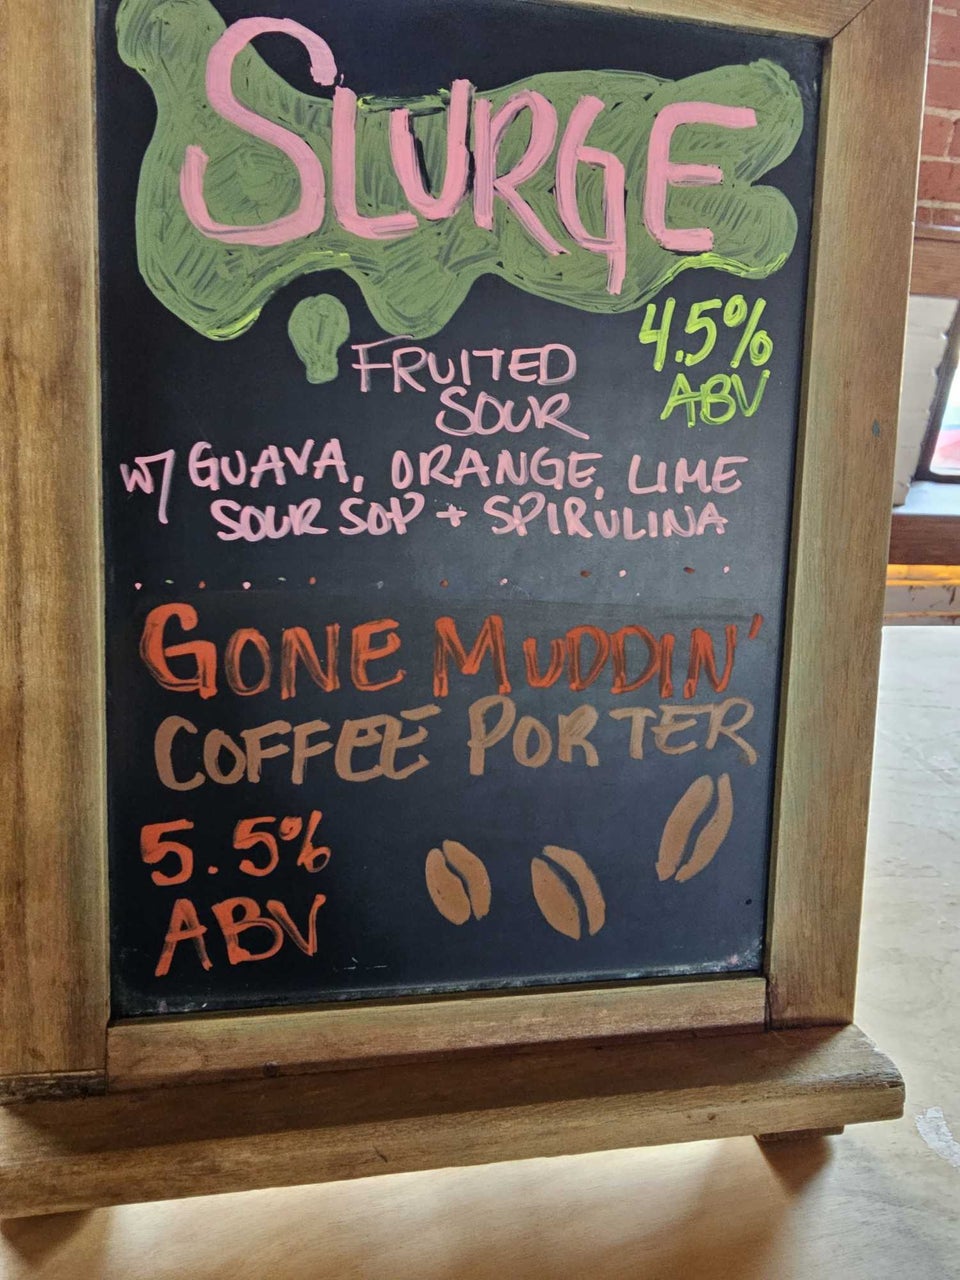 SLURGE
4.5%
ABV
FRUITED
SOUR
W/ GUAVA, ORANGE, LIME
SOUR SOP + SPIRULINA
GONE MUDDIN'
COFFEE PORTER
5.5%
ABV